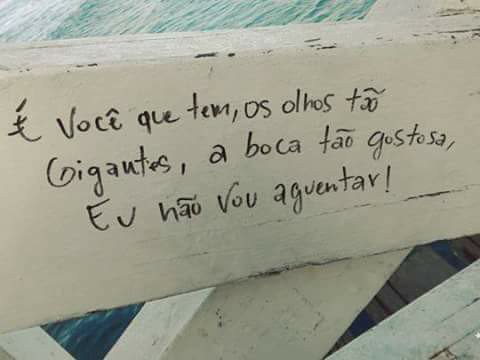 É Você que tem, os olhos tão
Gigantes, a boca tão gostosa,
Eu não vou aguentar!